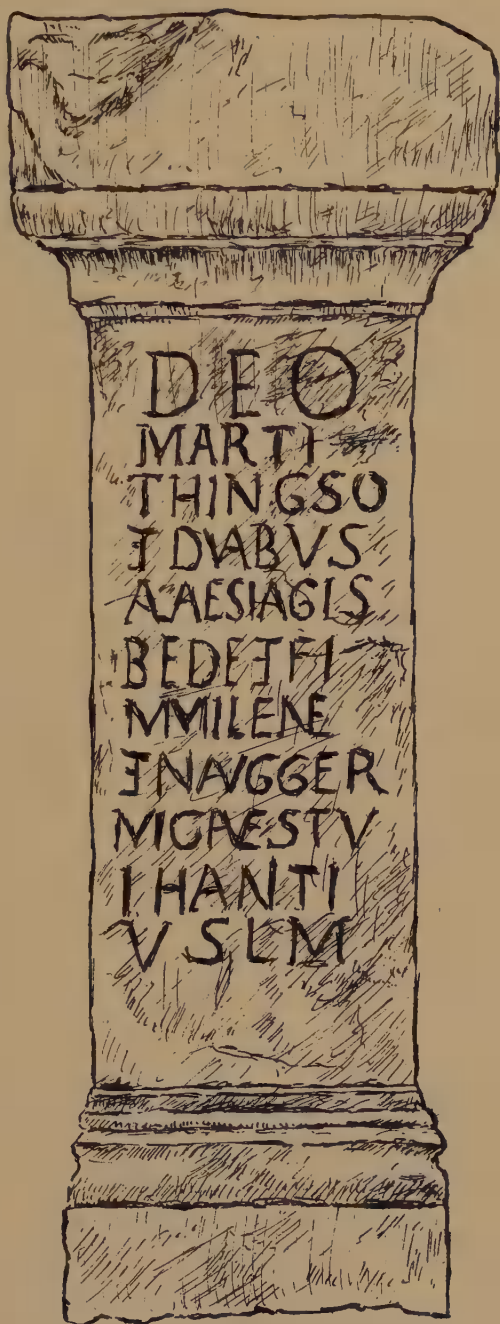 DEO
MARTI
THINGSO
ET DVABVS
ALAESIAGIS
BEDE ET FI
MMILENE
ET N AVG GER
M CIVES TV
IHANTI
VSLM